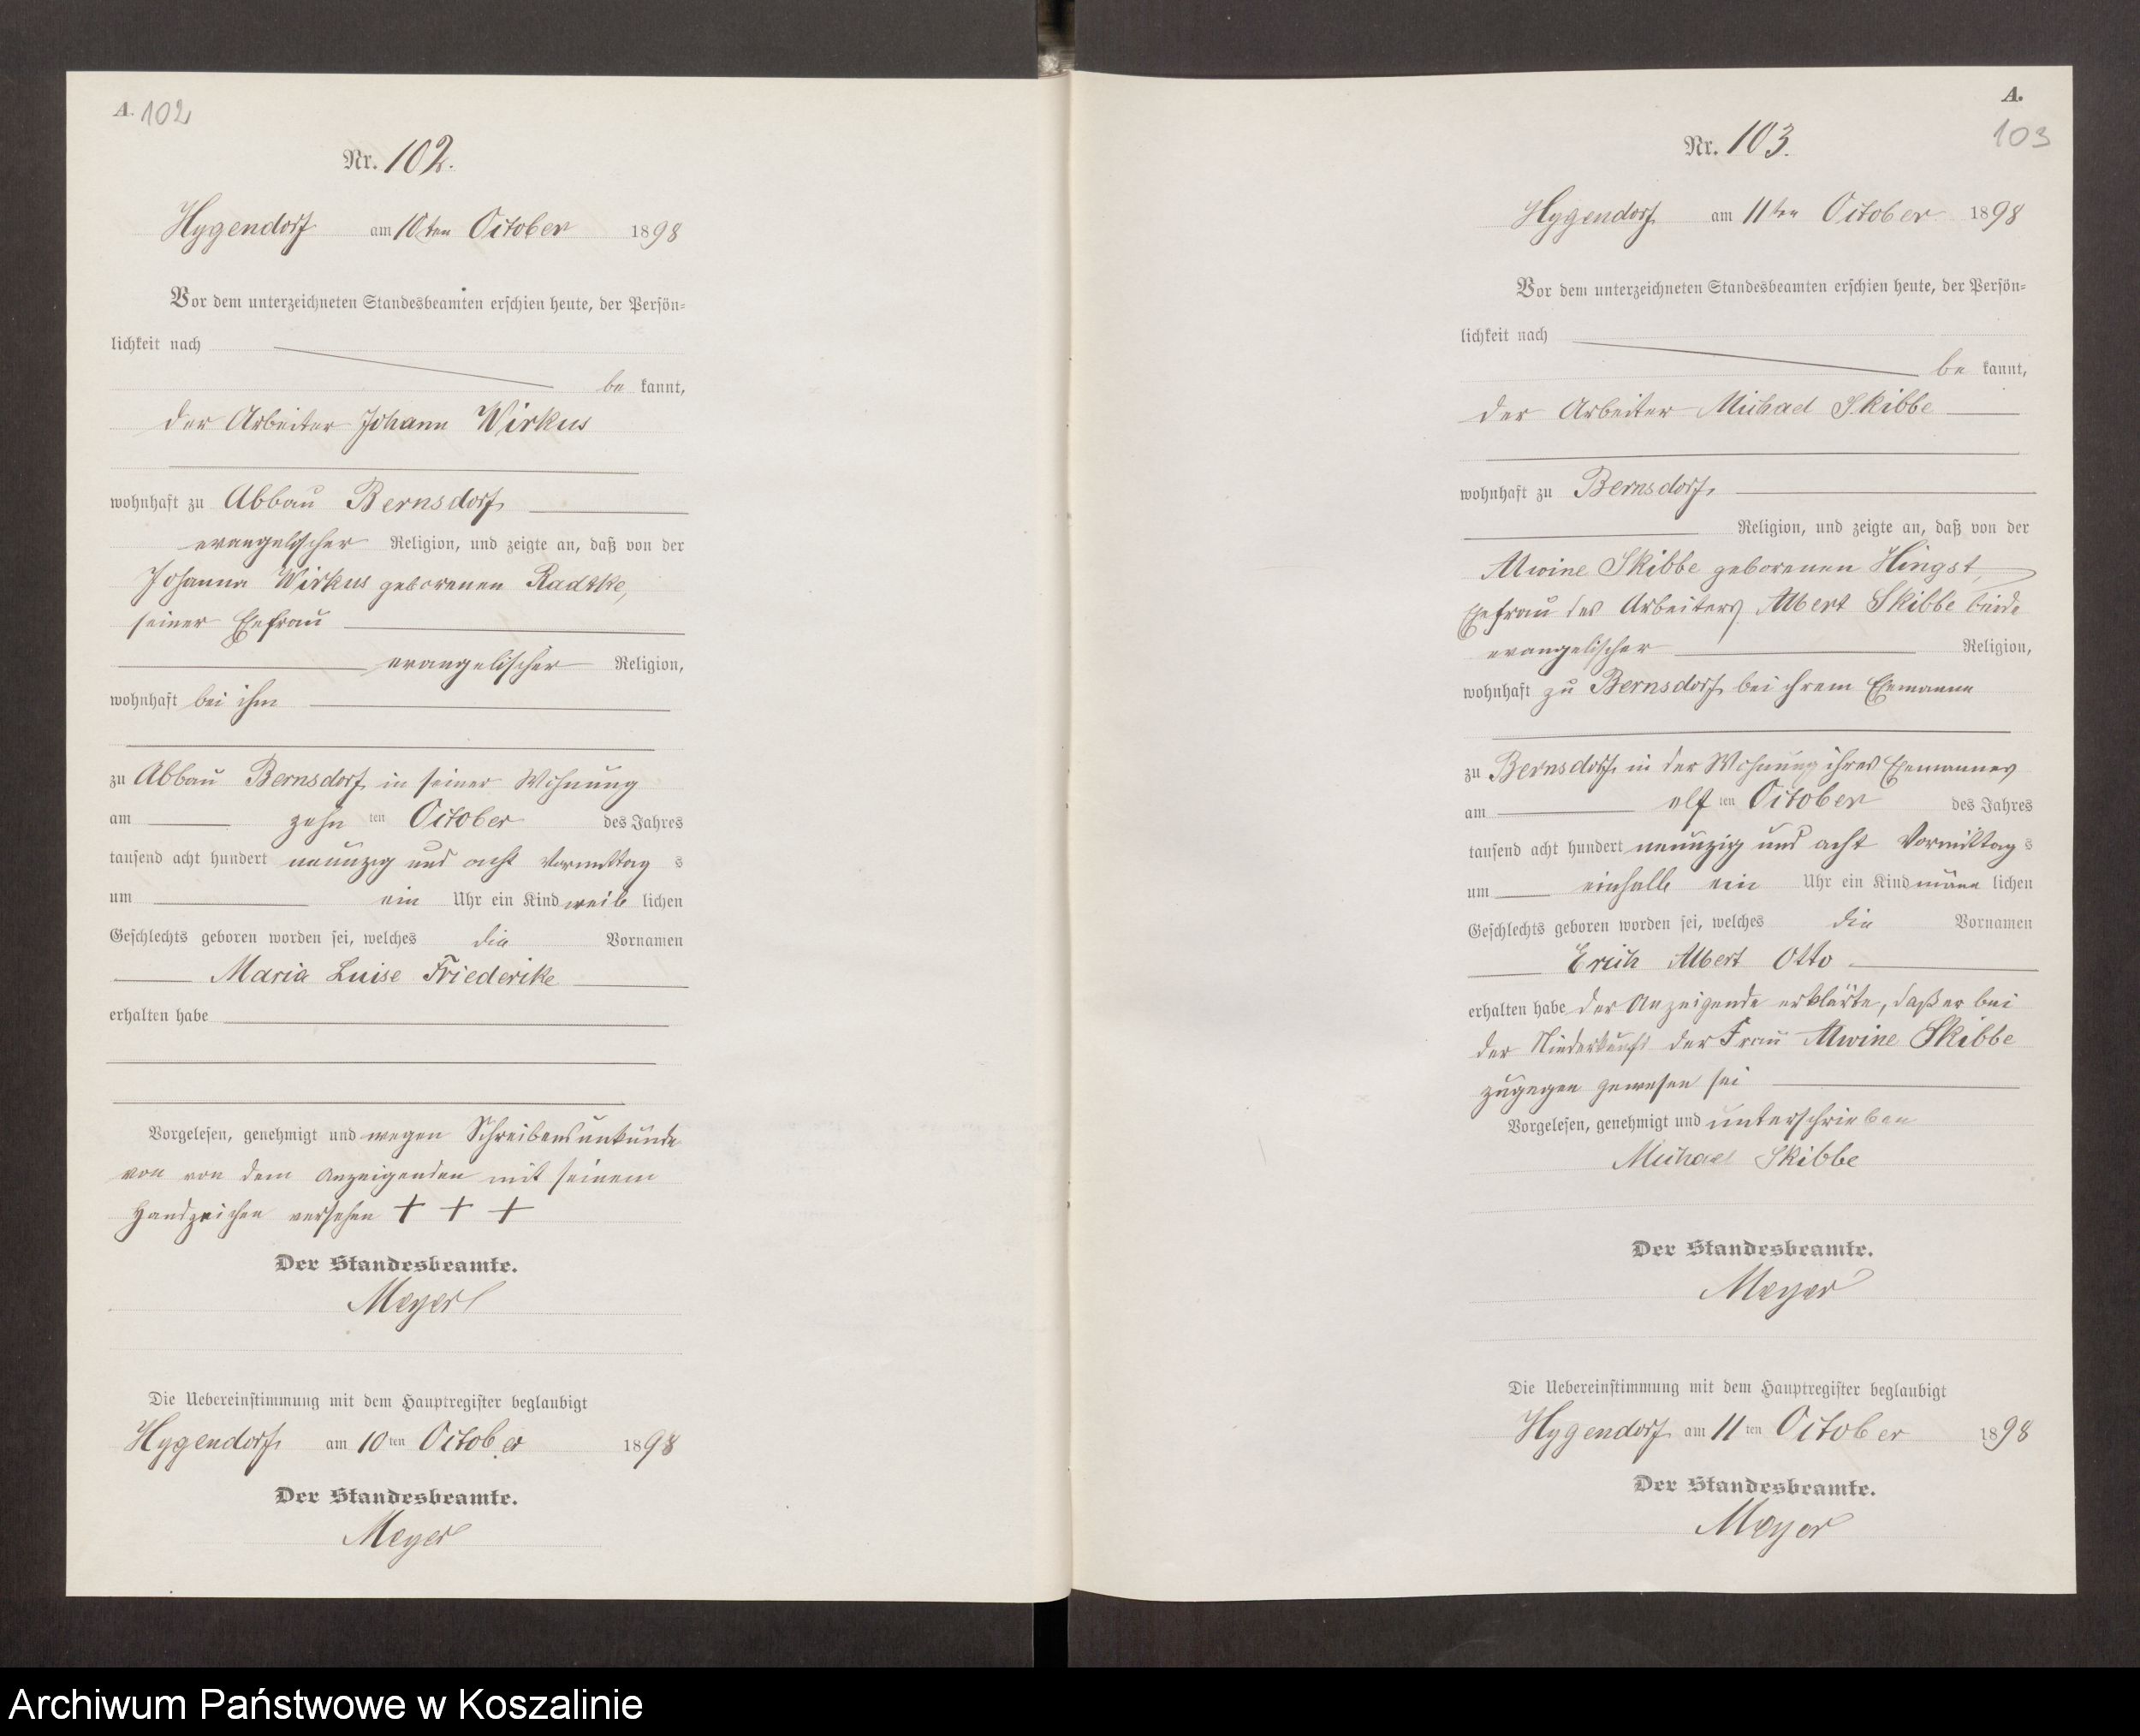 A. 102
Nr. 102.
Hygendorf am 10ten October 1898
Vor dem unterzeichneten Standesbeamten erschien heute, der Persön=
lichkeit nach
be kannt,
der Arbeiter Johann Wirkus
wohnhaft zu Abbau Bernsdorf
evangelischer Religion, und zeigte an, daß von der
Johanna Wirkus geborenen Radtke,
seiner Ehefrau
evangelischer Religion,
wohnhaft bei ihm
zu Abbau Bernsdorf in seiner Wohnung
am zehn ten October des Jahres
tausend acht hundert neunzig und acht Vormittag s
um ein Uhr ein Kind weib lichen
Geschlechts geboren worden sei, welches die Vornamen
Maria Luise Friederike
erhalten habe
Vorgelesen, genehmigt und wegen Schreibensunkunde
von von dem Anzeigenden mit seinem
Handzeichen versehen + + +
Der Standesbeamte.
Meyer
Die Uebereinstimmung mit dem Hauptregister beglaubigt
Hygendorf am 10 ten October 1898
Der Standesbeamte.
Meyer
A.
103
Nr. 103.
Hygendorf am 11ten October 1898
Vor dem unterzeichneten Standesbeamten erschien heute, der Persön=
lichkeit nach
be kannt,
der Arbeiter Michael Skibbe
wohnhaft zu Bernsdorf
Religion, und zeigte an, daß von der
Alwine Skibbe geborenen Hingst,
Ehefrau des Arbeiters Albert Skibbe beide
evangelischer Religion,
wohnhaft zu Bernsdorf bei ihrem Ehemanne
zu Bernsdorf in der Wohnung ihres Ehemannes
am elf ten October des Jahres
tausend acht hundert neunzig und acht Vormittag s
um einhalb ein Uhr ein Kind männ lichen
Geschlechts geboren worden sei, welches die Vornamen
Erich Albert Otto
erhalten habe der Anzeigende erklärte, daß er bei
der Niederkunft der Frau Alwine Skibbe
zugegen gewesen sei
Vorgelesen, genehmigt und unterschrieben
Michael Skibbe
Der Standesbeamte.
Meyer
Die Uebereinstimmung mit dem Hauptregister beglaubigt
Hygendorf am 11 ten October 1898
Der Standesbeamte.
Meyer
Archiwum Państwowe w Koszalinie